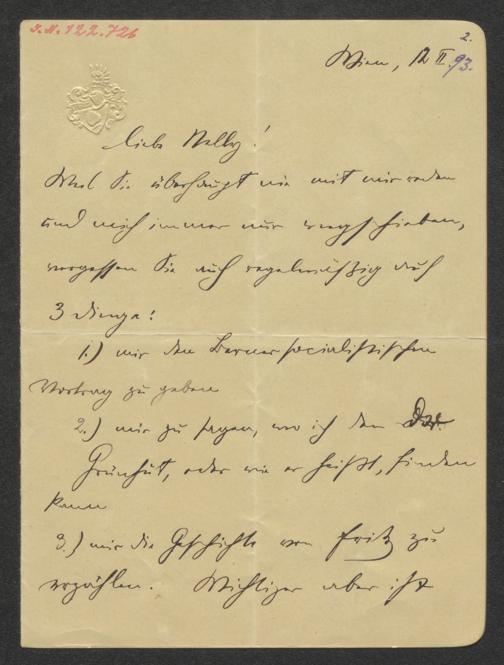 I.N. 122.726
2.
Wien, 12 II. 93.
Liebe Nelly!
Weil Sie überhaupt nie mit mir reden
und mich immer nur wegschieben,
vergessen Sie auch regelmäßig auf
3 Dinge:
1.) mir den Berner socialistischen
Vortrag zu geben
2.) mir zu sagen, wo ich den
Grünhut, oder wie er heißt, finden
kann
3.) mir die Geschichte von Fritz zu
erzählen. Wichtiger aber ist